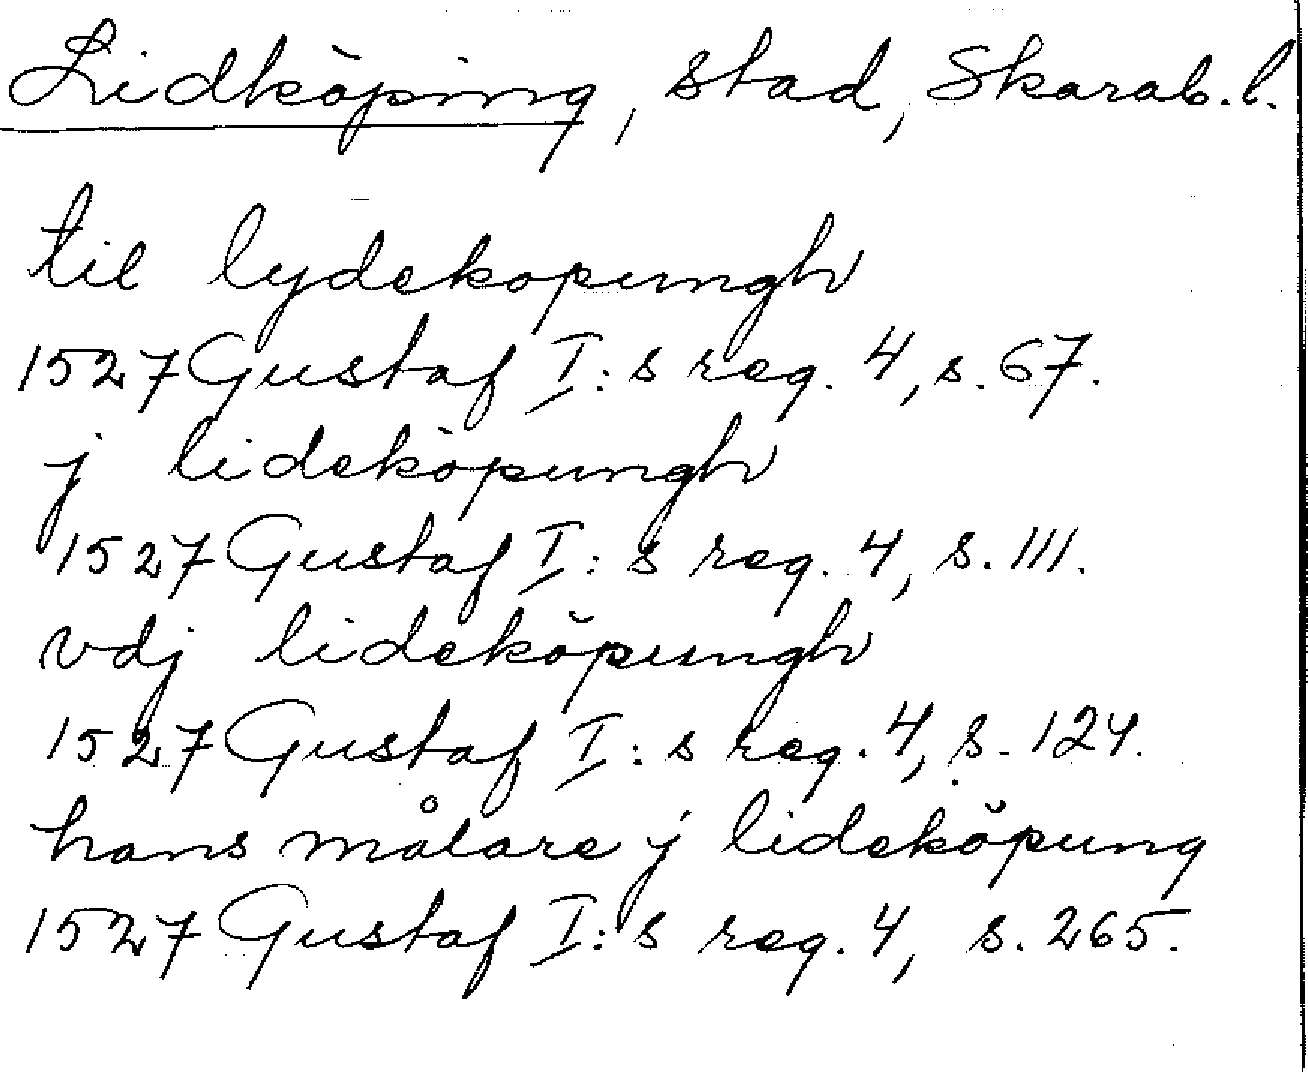 Lidköping, stad, Skarab. l.
til lydekopungh
1527 Gustaf I:s reg. 4, s. 67.
j lideköpungh
1527 Gustaf I:s reg. 4, s. 111.
vdj lideköpungh
1527 Gustaf I:s reg. 4, s. 124.
hans målare j lideköpung
1527 Gustaf I:s reg. 4, s. 265.